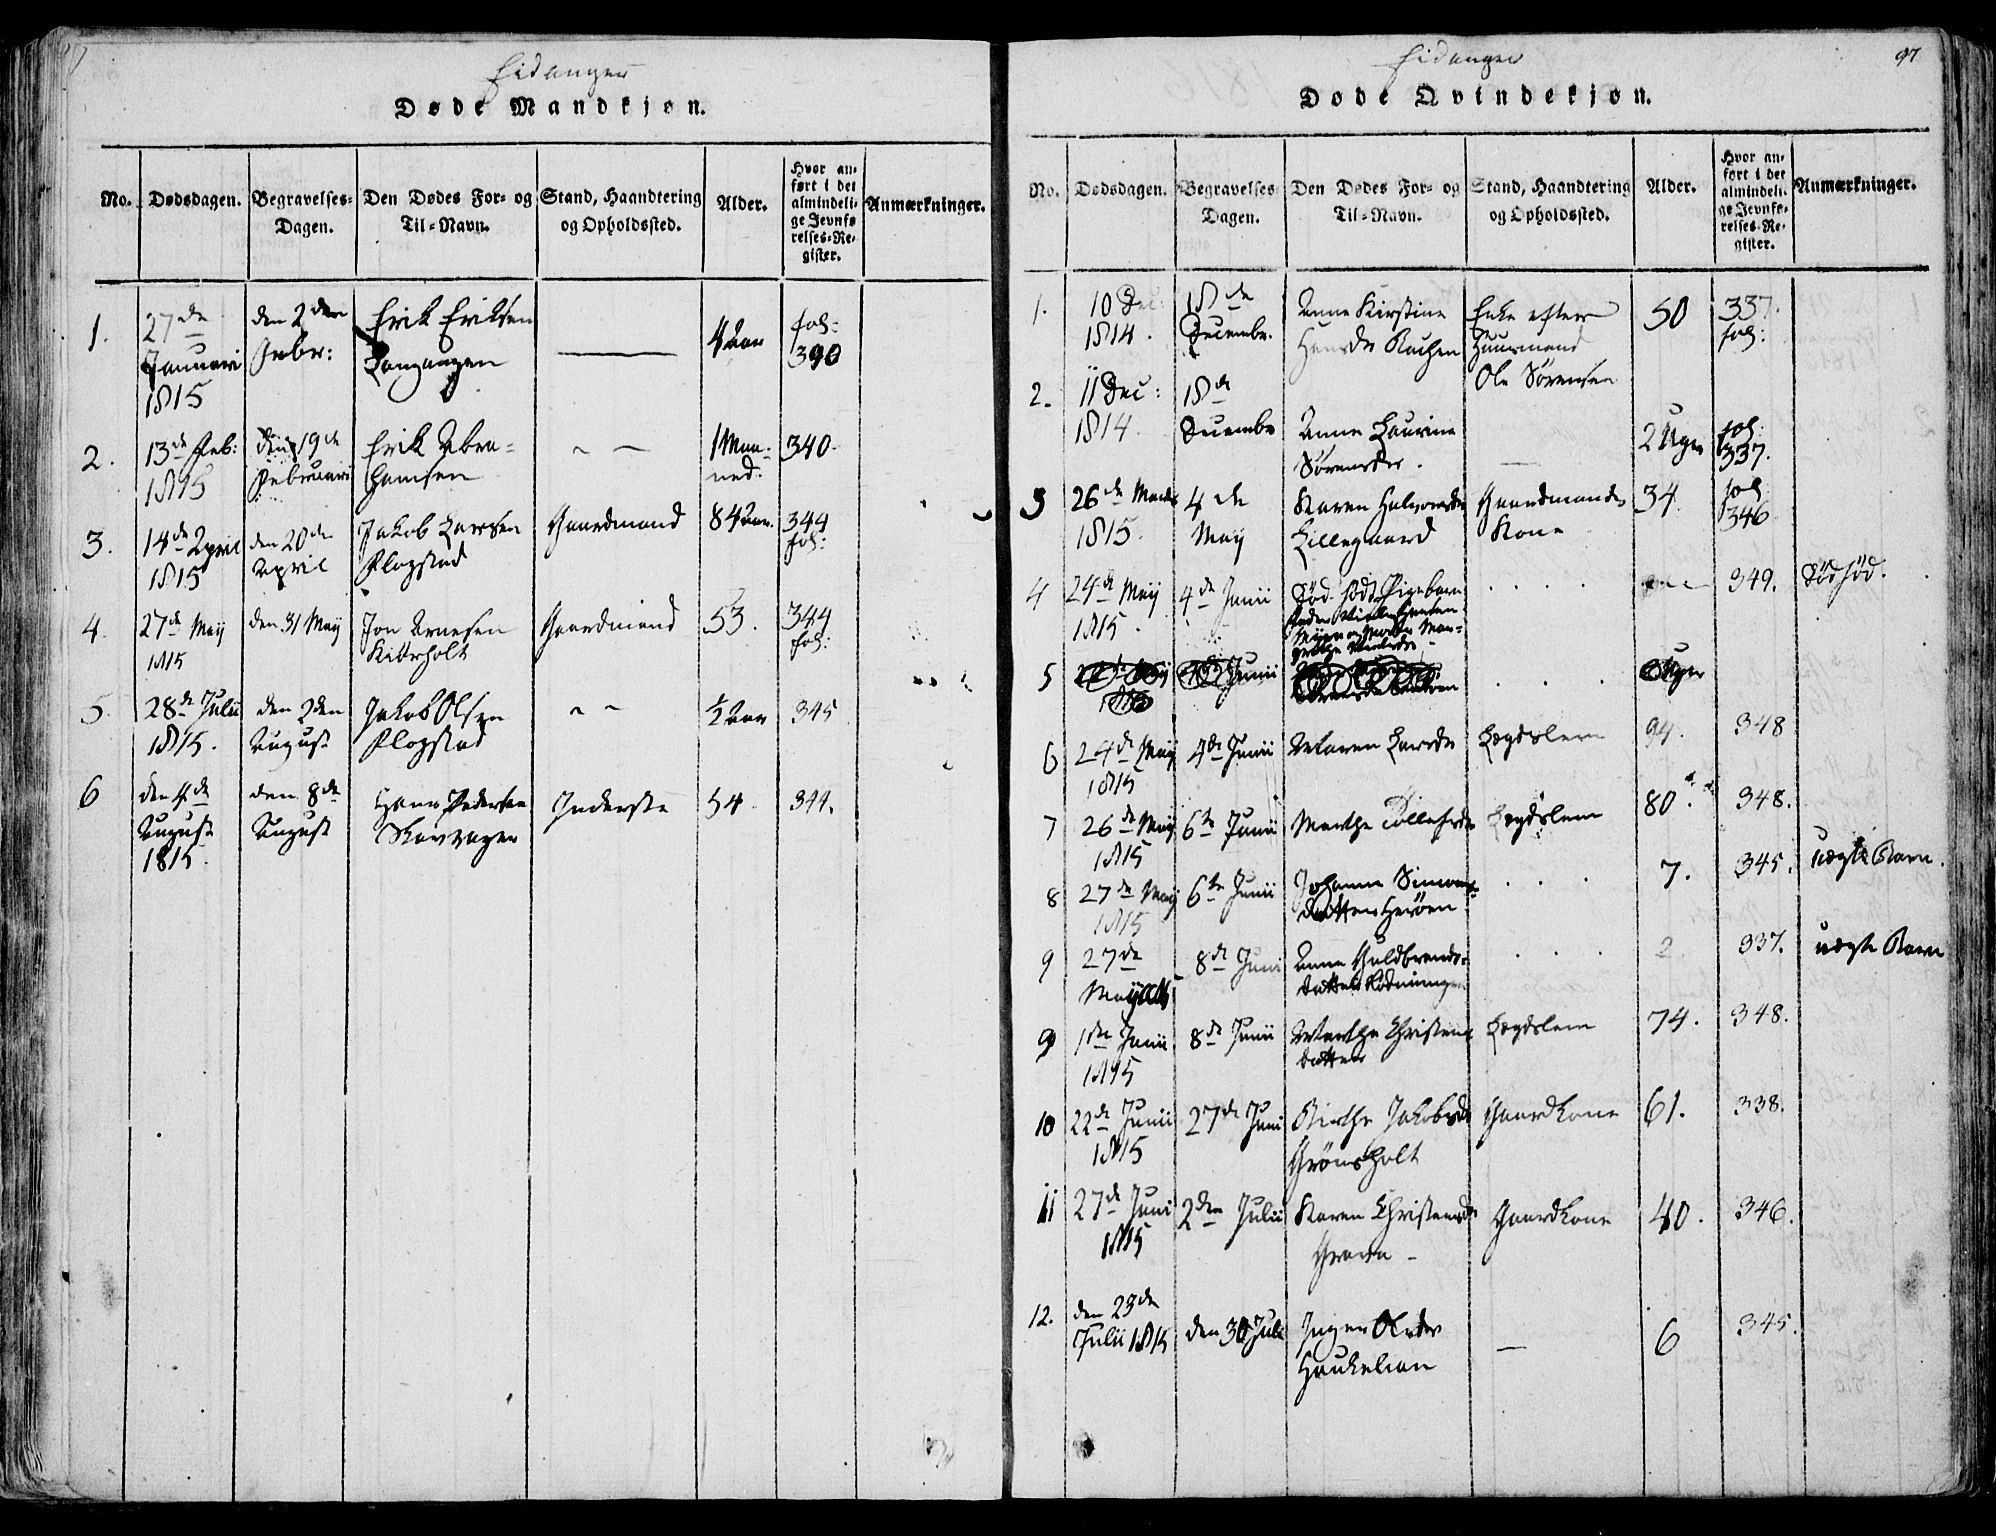 Eidanger
Døde Mandkjøn.
No.
Dødsdagen.
Begravelses-
Dagen.
Den Dødes For- og
Til-Navn.
Stand, Haandtering
og Opholdssted.
Alder.
Hvor an-
ført i det
almindeli-
ge Jevnfø
relses-Re-
gister.
Anmærkninger.
1.
27de
Januari
1815
den 2den
Febr:
Erik Eriksen
Langangen
4 Aar
fol:
390
2.
13de Feb:
1815
den 19de
Februari
Erik Abra-
hamsen
1 Maa-
ned.
340.
3.
14de April
1815
den 20de
April
Jakob Larsen
Flogstad
Gaardmand
84 Aar.
344
fol:
4.
27de Maij
1815
den 31 Maij
Jon Arnesen
Kitterholt
Gaardmand
53.
344
fol:
5.
28de Julii
1815.
den 2den
August
Jakob Olsen
Flogstad
½ Aar
345
6
den 4de
August
1815.
den 8de
August
Hans Pedersen
Skavragen
Inderste
54
344.
Eidanger
97
Døde Qvindekjøn.
No.
Dødsdagen.
Begravelses-
Dagen.
Den Dødes For- og
Til-Navn.
Stand, Haandtering
og Opholdssted.
Alder.
Hvor an-
ført i det
almindeli-
ge Jevnfø-
relses-Re-
gister.
Anmærkninger.
1.
10 Dec
1814.
18de
Decembr.
Anne Kirstine
Hansdr
Enke efter
Huusmand
Ole Sørensen
50
337.
fol:
2.
11 Dec:
1814
18de
Decembr
Anne Laurine
Sørensdr.
2 Uger
fol:
337.
3
26de Martii
1815.
4de
Maij
Karen Halvorsdr
Lillegaard
Gaardmands
Kone
34.
fol
346
4
24de Maij
1815.
4de Junii
Død født Pigebarn
349.
Dødfød.
5
Junii
Uger
6
24de Maij
1815
4de Junii
Maren Larsdr
Lægdslem
94.
348
7
26de Maij
1815
6te Junii
Marthe Tollefsdr
Lægdslem
80.
348.
8
27de Maij
1815
6te Junii
Johanne Simons-
datter Herøen
7.
345.
uægte Barn.
9
27de
Maij 1815
8de Juni
Anne Guldbrands-
datter Rødningen
2
337.
uægte Barn
9
1ste Junii
1815
8de Junii
Marthe Christens
datter
Lægdslem
74.
348.
10
22de Junii
1815
27de Juni
Birthe Jakobsdr
Grønsholt
Gaardkone
61.
338.
11
27de Juni
1815
2den Julii
Karen Christensdr
Grava
Gaardkone
40.
346.
12.
den 23de
Julii 1815
den 30 Juli
Inger Olsdr
Haukelian
6
345.